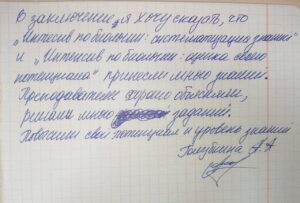 В заключение, я хочу сказать, что
"Интенсив по биологии: систематизация знаний"
и "Интенсив по биологии: оценка своего
потенциала" принесли много знаний.
Преподаватели хорошо объясняли,
решали много заданий.
Повысили свой потенциал и уровень знаний
Голубкина А. А